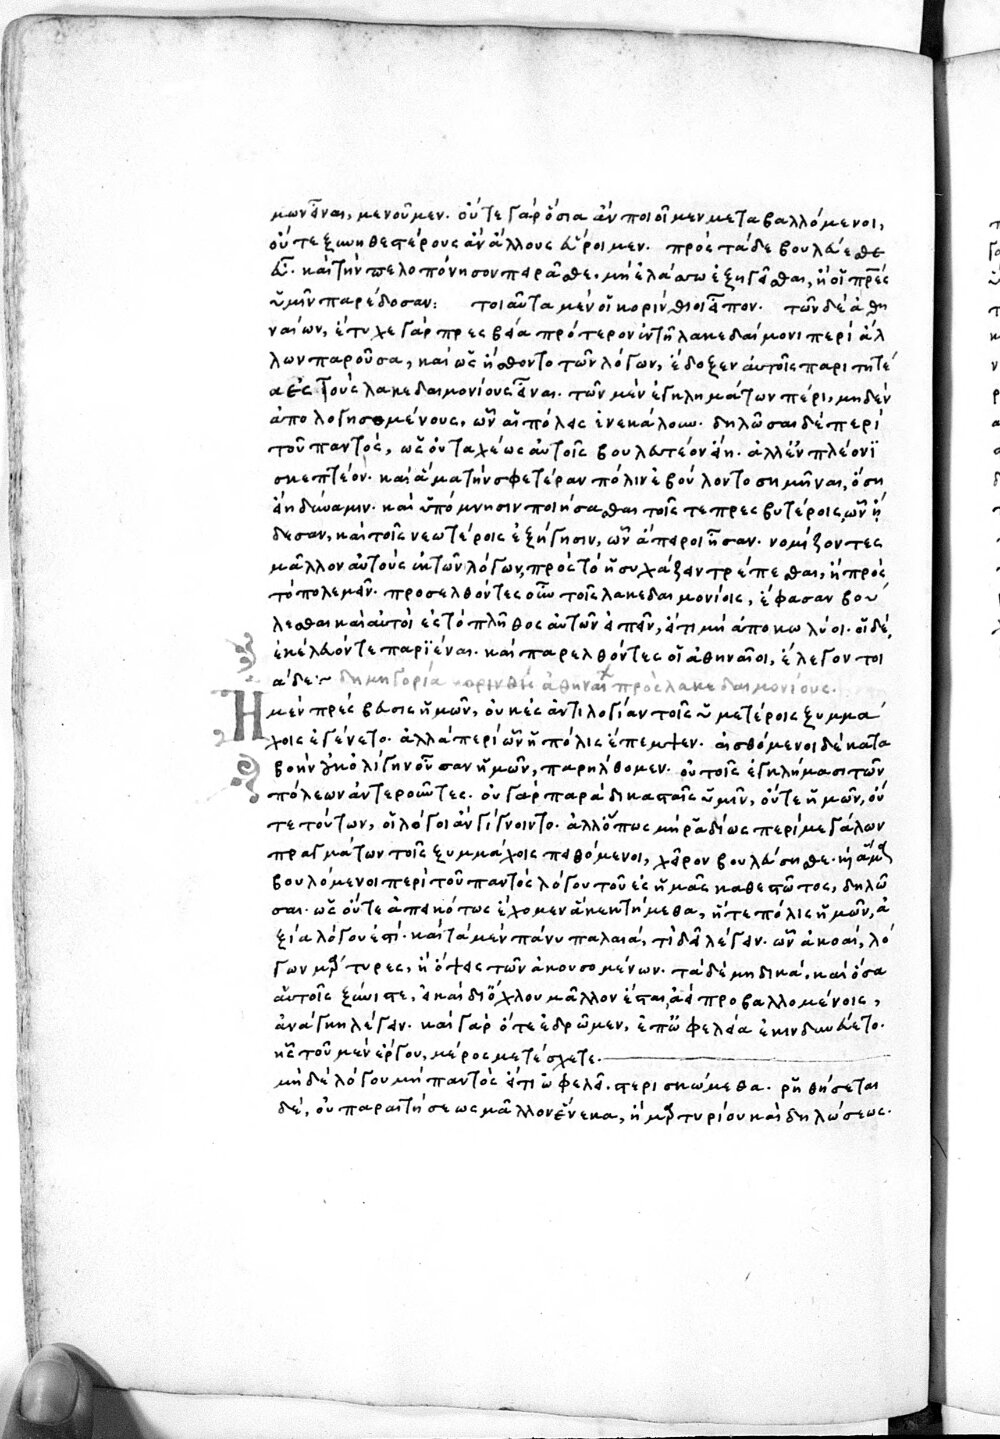 μων εἶναι, μενοῦμεν. οὔτε γὰρ ὅσια ἂν ποιοῖμεν μεταβαλλόμενοι,
οὔτε ξυνηθεστέρους ἂν ἄλλους εὕροιμεν. πρὸς τάδε βουλεύεσθε
εὖ. καὶ τὴν πελοπόνησον πειρᾶσθε. μὴ ἐλάσσω ἐξηγεῖσθαι, ἢ οἱ πρ̅ε̅ς
ὑμῖν παρέδοσαν: τοιαῦτα μὲν οἱ κορίνθιοι εἶπον. τῶν δὲ ἀθη
ναίων, ἔτυχε γὰρ πρεσβεία πρότερον ἐν τῆ λακεδαίμονι περὶ ἀλ
λων παροῦσα, καὶ ὡς ἤσθοντο τῶν λόγων, ἔδοξεν αὐτοῖς παριτητέ
α ἐς τοὺς λακεδαιμονίους εἶναι. τῶν μὲν ἐγκλημάτων πέρι, μηδὲν
ἀπολογησομένους, ὧν αἱ πόλεις ἐνεκάλουν. δηλῶσαι δὲ περὶ
τοῦ παντὸς, ὡς οὐ ταχέως αὐτοῖς βουλευτέον εἴη. ἀλλ' ἐν πλέονϊ
σκεπτέον. καὶ ἅμα τὴν σφετέραν πόλιν ἐβούλοντο σημῆναι, ὅση
εἴη δύναμιν. καὶ ὑπόμνησιν ποιήσασθαι τοῖς τε πρεσβυτέροις, ὧν ἤ
δεσαν, καὶ τοῖς νεωτέροις ἐξήγησιν, ὧν ἄπειροι ἦσαν. νομίζοντες
μᾶλλον αὐτοὺς ἐκ τῶν λόγων, πρὸς τὸ ἡσυχάζειν τρέπεσθαι, ἢ πρὸς
τὸ πολεμεῖν. προσελθόντες οὖν τοῖς λακεδαιμονίοις, ἔφασαν βού
λεσθαι καὶ αὐτοὶ ἐς τὸ πλῆθος αὐτῶν εἰπεῖν, εἴ τι μὴ ἀποκωλύοι. οἱ δὲ,
ἐκέλευόν τε παρϊέναι. καὶ παρελθόντες οἱ ἀθηναῖοι, ἔλεγον τοι
άδε:~ δημηγορία ἀθηναίων πρὸς λακεδαιμονίους.
Ἡ
μὲν πρέσβευσις ἡμῶν, οὐκ ἐς ἀντιλογίαν τοῖς ὑμετέροις ξυμμά
χοις ἐγένετο. ἀλλὰ περὶ ὧν ἡ πόλις ἔπεμψεν. αἰσθόμενοι δὲ κατα
βοὴν οὐκ ὀλίγην οὖσαν ἡμῶν, παρήλθομεν. οὐ τοῖς ἐγκλήμασι τῶν
πόλεων ἀντεροῦντες. οὐ γὰρ παρὰ δικασταῖς ὑμῖν, οὔτε ἡμῶν, οὔ
τε τούτων, οἱ λόγοι ἂν γίγνοιντο. ἀλλ' ὅπως μὴ ῥαδίως περὶ μεγάλων
πραγμάτων τοῖς ξυμμάχοις πειθόμενοι, χεῖρον βουλεύσησθε. κ(αὶ) ἅμα
βουλόμενοι περὶ τοῦ παντὸς λόγου τοῦ ἐς ἡμᾶς καθεστῶτος, δηλῶ
σαι. ὡς οὔτε ἀπεικότως ἔχομεν ἃ κεκτήμεθα, ἥ τε πόλις ἡμῶν, ἀ
ξία λόγου ἐστί. καὶ τὰ μὲν πάνυ παλαιά, τί δεῖ λέγειν. ὧν ἀκοαὶ, λό
γων μάρτυρες, ἢ ὄψεις τῶν ἀκουσομένων. τὰ δὲ μηδικὰ, καὶ ὅσα
αὐτοὶς ξύνιστε, εἰ καὶ δι' ὄχλου μᾶλλον ἔσται, ἀεὶ προβαλλομένοις,
ἀνάγκη λέγειν. καὶ γὰρ ὅτε ἐδρῶμεν, ἐπ' ὠφελεία ἐκινδυνεύετο.
ἧς τοῦ μὲν ἔργου, μέρος μετέσχετε.
μὴ δὲ λόγου μὴ παντὸς εἴ τι ὠφελεῖ. στερισκώμεθα. ῥηθήσεται
δὲ, οὐ παραιτήσεως μᾶλλον ἕνεκα, ἢ μαρτυρίου καὶ δηλώσεως.